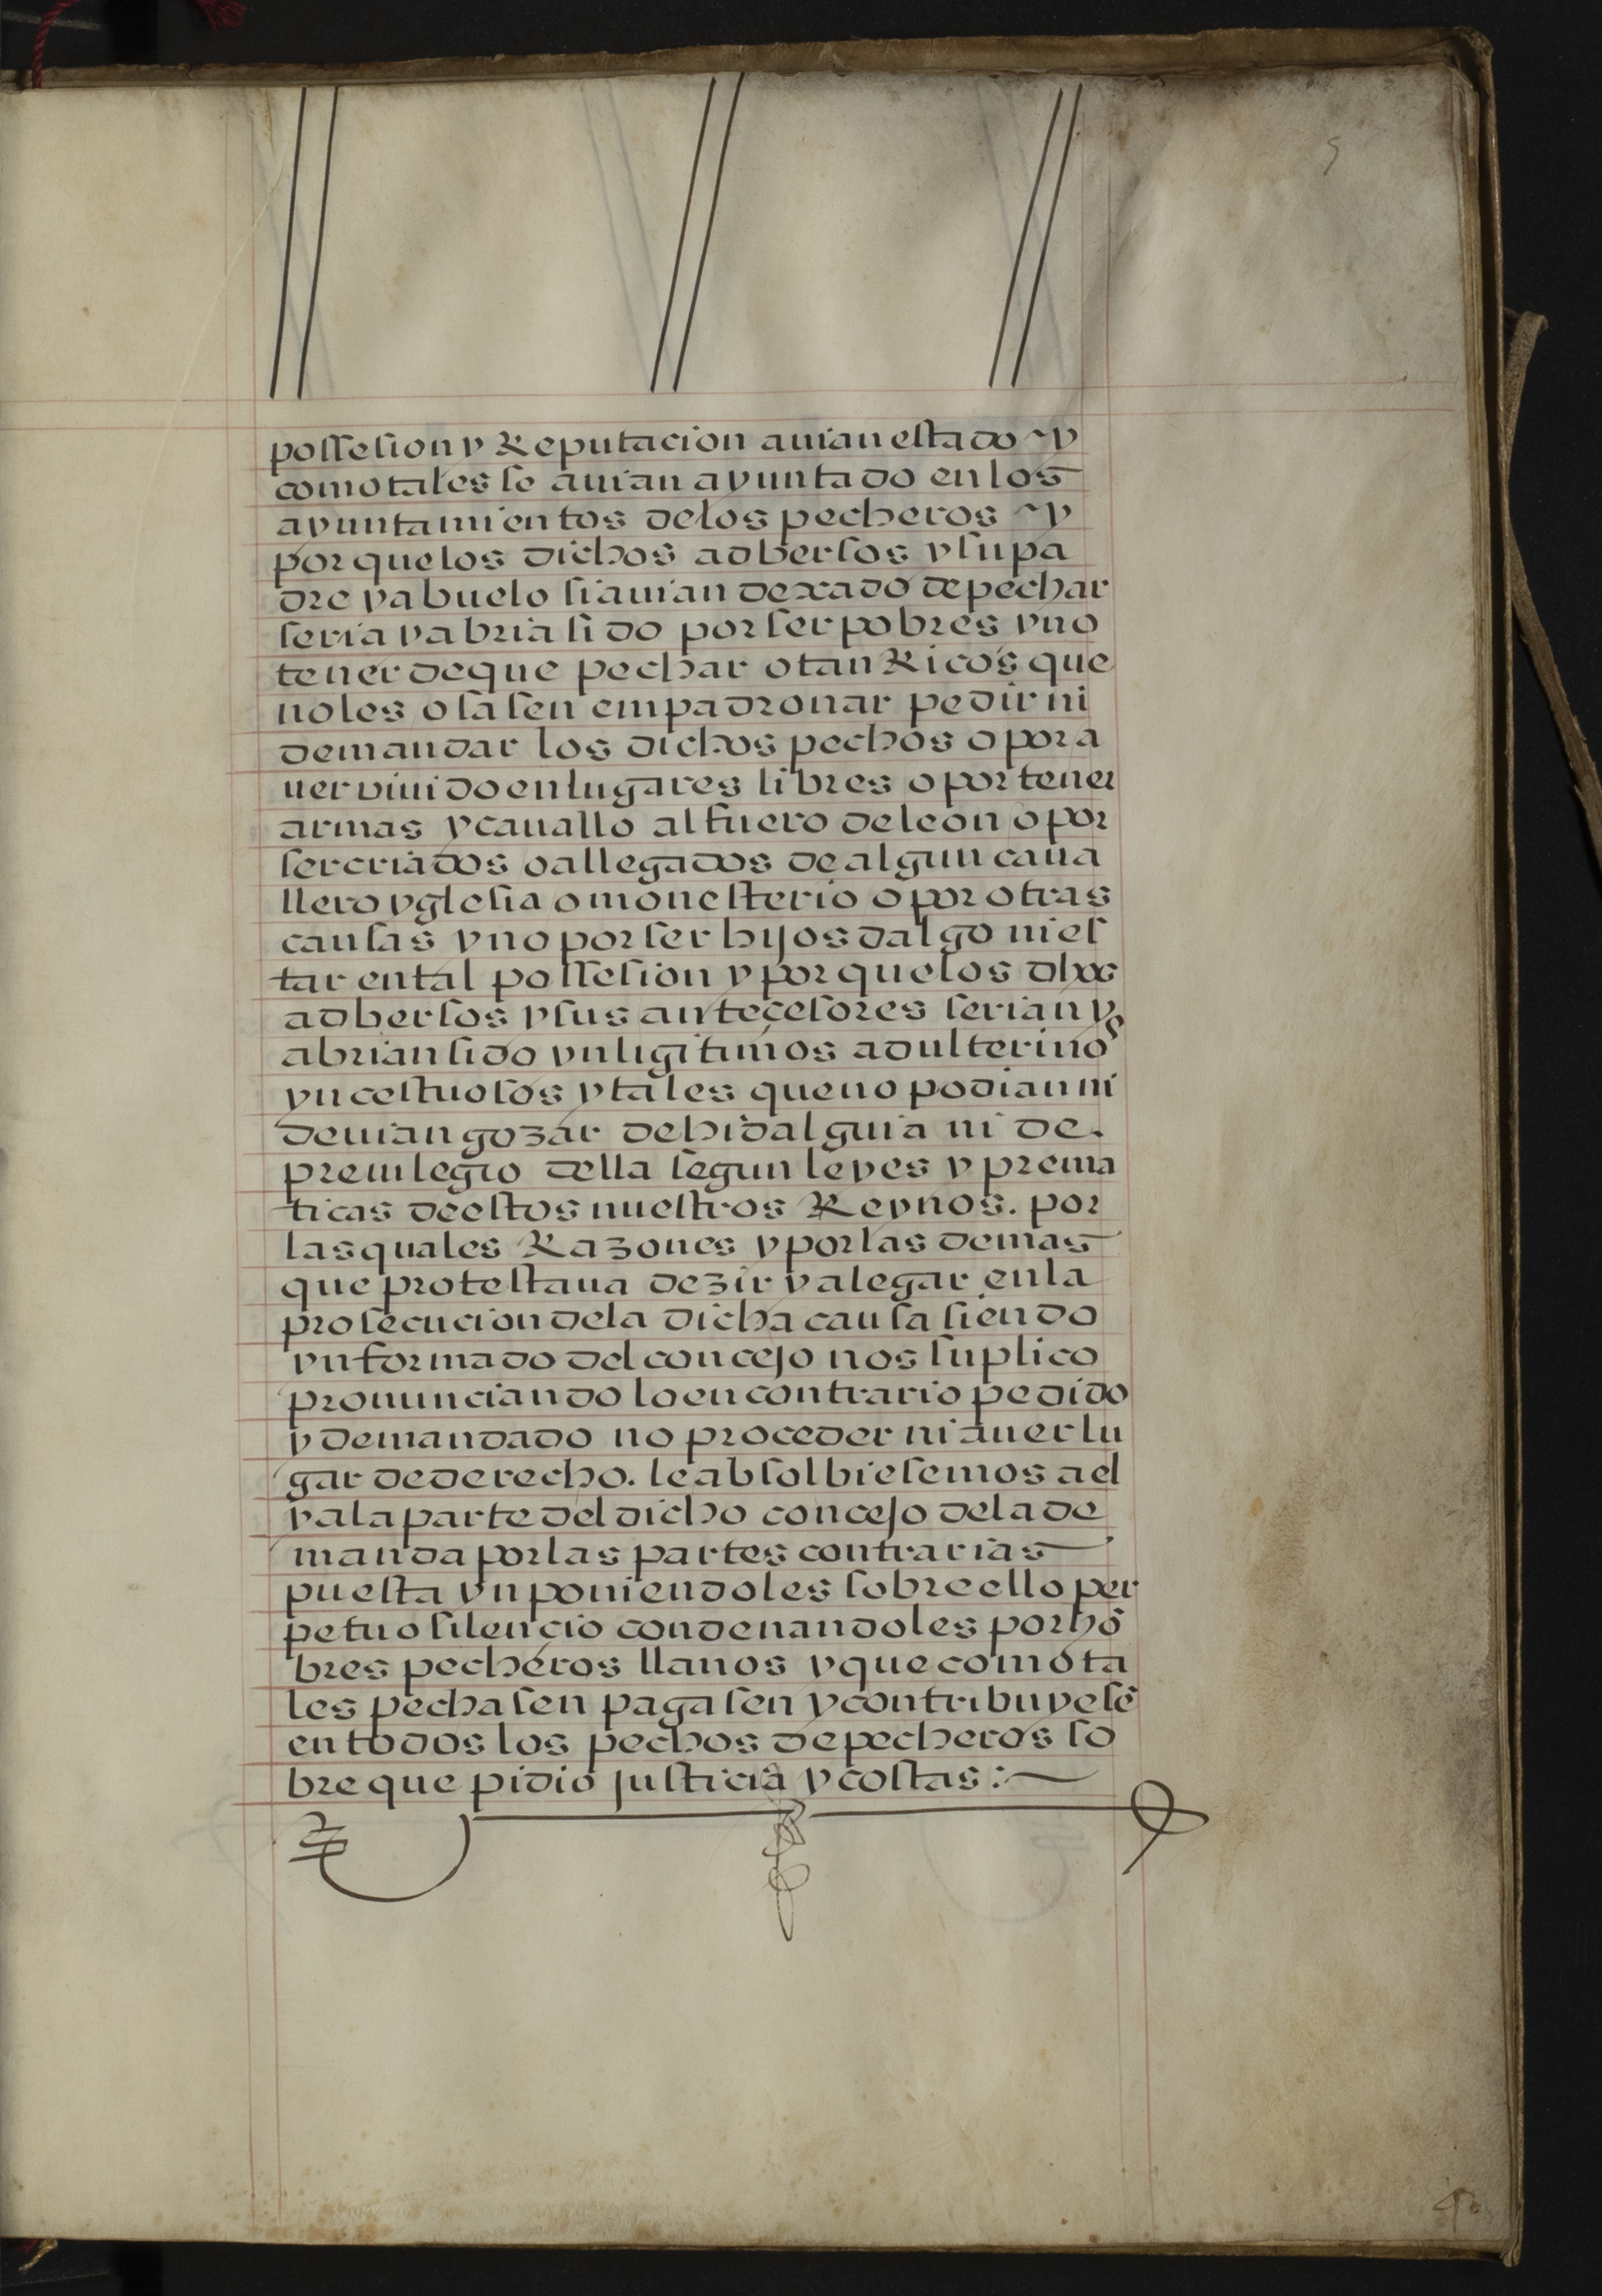 possesion y Reputacion auian estado ~ y
como tales se auian ayuntado en los
ayuntamientos de los pecheros ~ y
por que los dichos adbersos y su pa
dre y abuelo si auian dexado de pechar
seria y abria sido por ser pobres y no
tener de que pechar o tan Ricos que
no les osasen empadronar pedir ni
demandar los dichos pechos o por a
uer viuido en lugares libres o por tener
armas y cauallo al fuero de leon o por
ser criados o allegados de algun caua
llero yglesia o monesterio o por otras
causas y no por ser hijos dalgo ni es
tar en tal possesion y por que los dhos
adbersos y sus anteçesores serian y
abrian sido ynligitimos adulterinos
yncestuosos y tales que no podian ni
deuian gozar de hidalguia ni de.
preuilegio della segun leyes y prema
ticas de estos nuestros Reynos. por
las quales Razones y por las demas
que protestaua dezir y alegar en la
prosecucion de la dicha causa siendo
ynformado del concejo nos suplico
pronunciando lo en contrario pedido
y demandado no proceder ni auer lu
gar de derecho. le absolbiesemos a el
y a la parte del dicho concejo de la de
manda por las partes contrarias
puesta ynponiendoles sobre ello per
petuo silencio condenandoles por hõ
bres pecheros llanos y que como ta
les pechasen pagasen y contribuyesẽ
en todos los pechos de pecheros so
bre que pidio justicia y costas :~